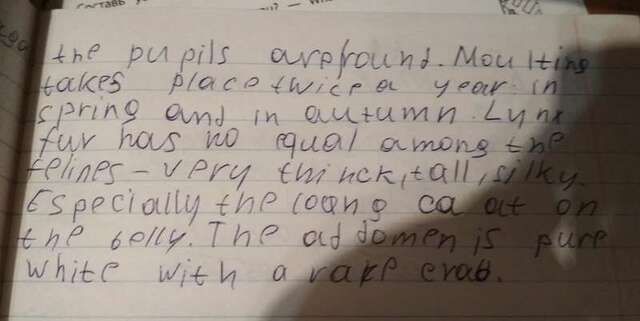 the pupils are round. Moulting
takes place twice a year: in
spring and in autumn. Lynx
fur has no equal among the
felines – very thinck, tall, silky.
Especially the loang ca at on
the belly. The atdomen is pure
white with a rake crab.